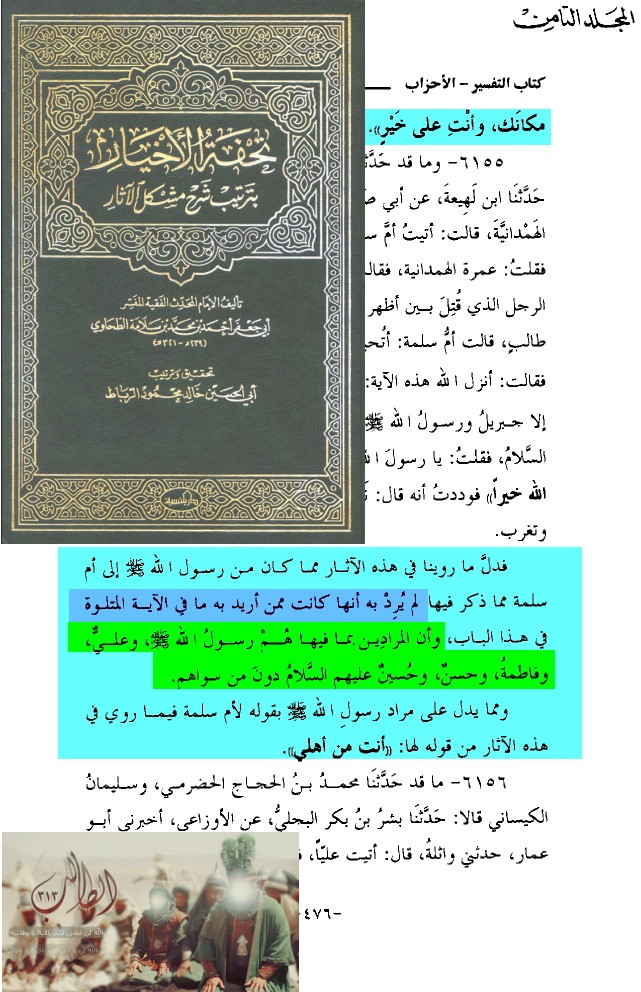 المجلد الثامن
كتاب التفسير - الأحزاب
مكانَك، وأنْتِ على خَيْرٍ».
٦١٥٥- وما قد حَدَّثَ
حَدَّثَنَا ابن لَهِيعةَ، عن أبي ص
الهَمْدانيَّةَ، قالت: أتيتُ أمَّ س
فقلتُ: عمرة الهمدانية، فقال
الرجل الذي قُتِلَ بـين أظهر
طالبٍ، قالت أمُّ سلمة: أتُحبـ
فقالت: أنزل الله هذه الآية:
إلا جـبريلُ ورسـولُ الله ﷺ
السَّلامُ، فقلتُ: يا رسولَ الله
الله خيراً» فوددتُ أنه قال: نَ
وتغرب.
تحفة الأخيار
بترتيب شرح مشكل الآثار
تأليف الإمام المحدث الفقيه المفسر
أبي جعفر أحمد بن محمد بن سلامة الطحاوي
(٢٣٩هـ-٣٢١هـ)
تحقيق وترتيب
أبي الحسين خالد محمود الرباط
دار بلنسية
فدلَّ ما روينا في هذه الآثار مما كان من رسـول الله ﷺ إلى أم
سلمة مما ذكر فيها لم يُرِدْ به أنها كانت ممن أريد به ما في الآيـة المتلوة
في هـذا البـاب، وأن المرادِيـن بمـا فيهـا هُـمْ رسـولُ الله ﷺ، وعلـيٌّ،
وفاطمةُ، وحسنٌ، وحُسينٌ عليهم السَّلامُ دونَ من سواهم.
ومما يدل على مراد رسولِ الله ﷺ بقوله لأم سلمة فيمـا روي في
هذه الآثار من قوله لها: «أنت من أهلي».
٦١٥٦- ما قد حَدَّثنَا محمدُ بـنُ الحجاج الحضرمي، وسليمانُ
الكيساني قالا: حَدَّثنَا بشرُ بنُ بكر البجليُّ، عن الأوزاعي، أخبرني أبـو
عمار، حدثني واثلةُ، قال: أتيت عليّاً، فـ
٤٧٦-
الطالب
٣١٣